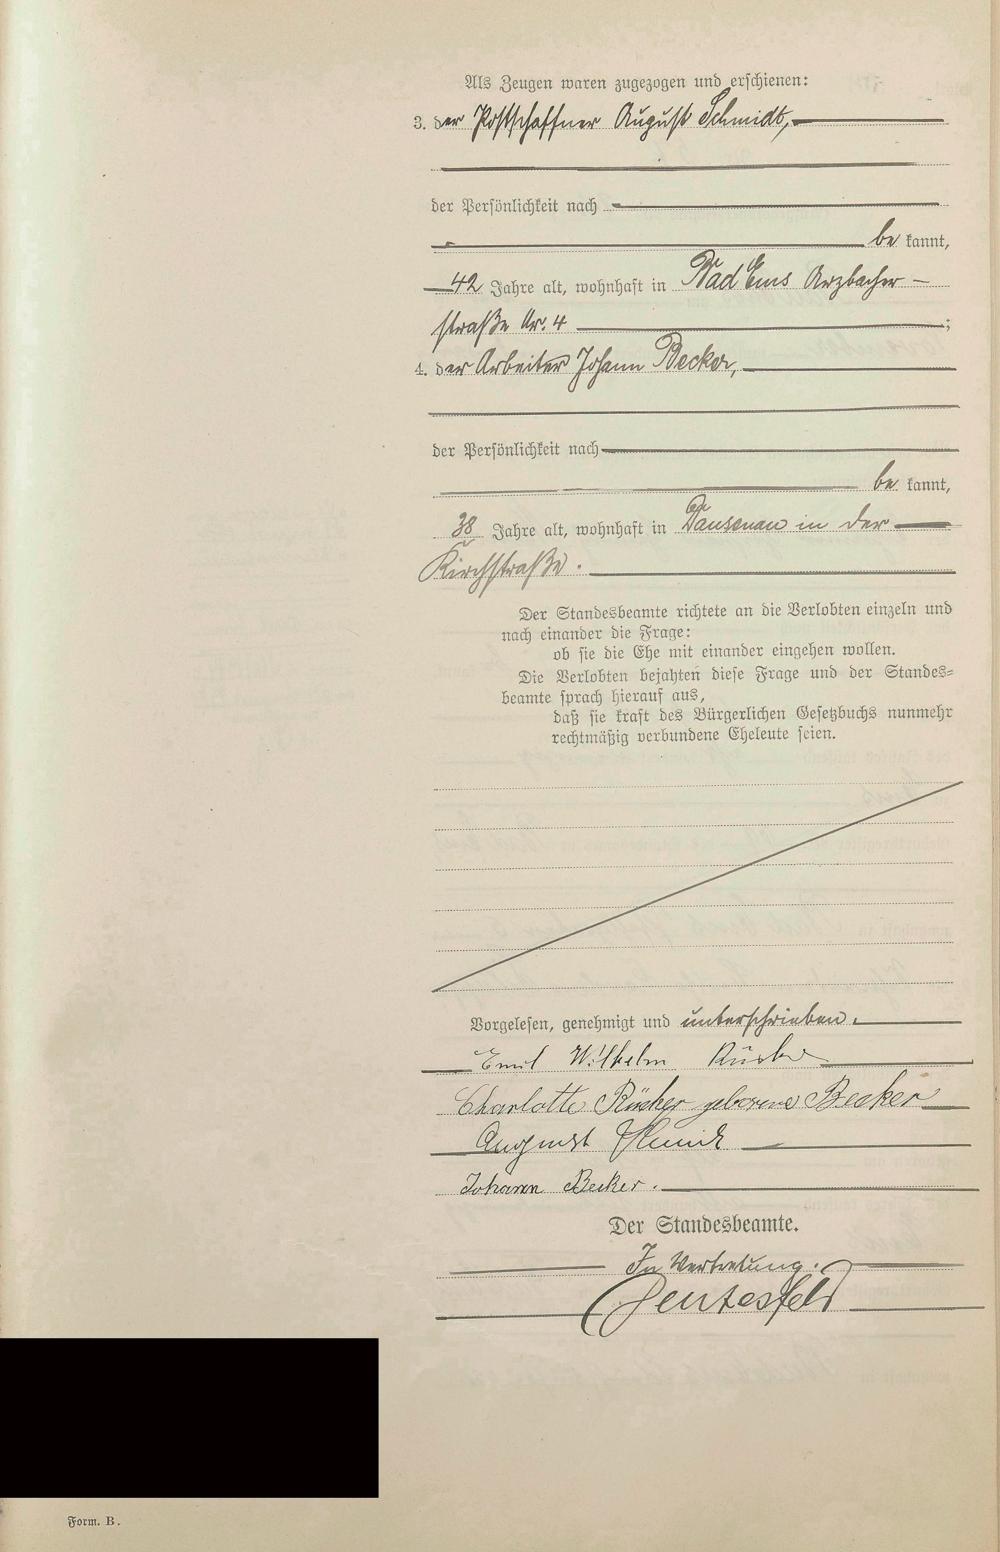 Als Zeugen waren zugezogen und erschienen:
3. der Postschaffner August Schmidt,
der Persönlichkeit nach
be kannt,
42 Jahre alt, wohnhaft in Bad Ems Arzbacher-
straße Nr. 4 ;
4. der Arbeiter Johann Becker,
der Persönlichkeit nach
be kannt,
38 Jahre alt, wohnhaft in Dausenau in der
Kirchstraße.
Der Standesbeamte richtete an die Verlobten einzeln und
nach einander die Frage:
ob sie die Ehe mit einander eingehen wollen.
Die Verlobten bejahten diese Frage und der Standes-
beamte sprach hierauf aus,
daß sie kraft des Bürgerlichen Gesetzbuchs nunmehr
rechtmäßig verbundene Eheleute seien.
Vorgelesen, genehmigt und unterschrieben.
Emil Wilhelm
Charlotte Rücker geborene Becker
August Schmidt
Johann Becker.
Der Standesbeamte.
In Vertretung.
Form. B.